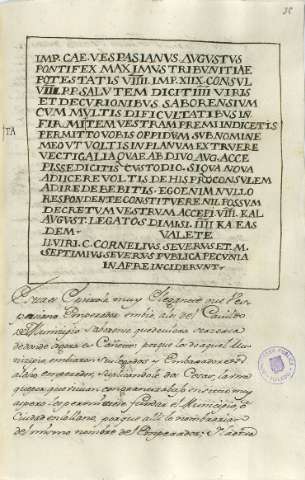 IMP. CAE. VESPASIANVS. AVGVSTVS
PONTIFEX MAXIMVS TRIBVNITIAE
POTESTATIS VIIII. IMP. XIIX CONSVL
VIIII. P.P. SALVTEM DICIT IIII VIRIS
ET DECVRIONIBVS SABORENSIVM
CVM MVLTIS DIFICVLTATIBVS IN
FIRMITEM VESTRAM PREMI INDICETIS
PERMITTO VOBIS OPPIDVM SVB NOMINE
MEO VT VOLTIS IN PLANVM EXTRVERE
VECTIGALIA QVAE AB DIVO AVG. ACCE
PISSE DICITIS CVSTODIO. SI QVA NOVA
ADIICERE VOLTIS DE HIS PROCONSVLEM
ADIRE DEBEBITIS. EGO ENIM NVLLO
RESPONDENTE CONSTITVERE NIL POSSVM
DECRETVM VESTRVM ACCEPI VIII. KAL
AVGVST. LEGATOS DIMISI. IIII KA EAS
DEM- VALETE
II. VIRI. C. CORNELIVS SEVERVS ET. M.
SEPTIMIVS SEVERVS PVBLICA PECVNIA
IN AERE INCIDERVNT
TA
muy Elegante que Ves
pasiano Emperador embio a los del
Municipio
de donde agora es Cañete: porque la
nicipio, embiaron sus legados y Embaxadores
al dicho emperador, suplicandole
aspero les permitiese fundar el Municipio, o
Ciudad en llano, porque alli le nombrarian
del mismo nombre del Emperador, y la otra